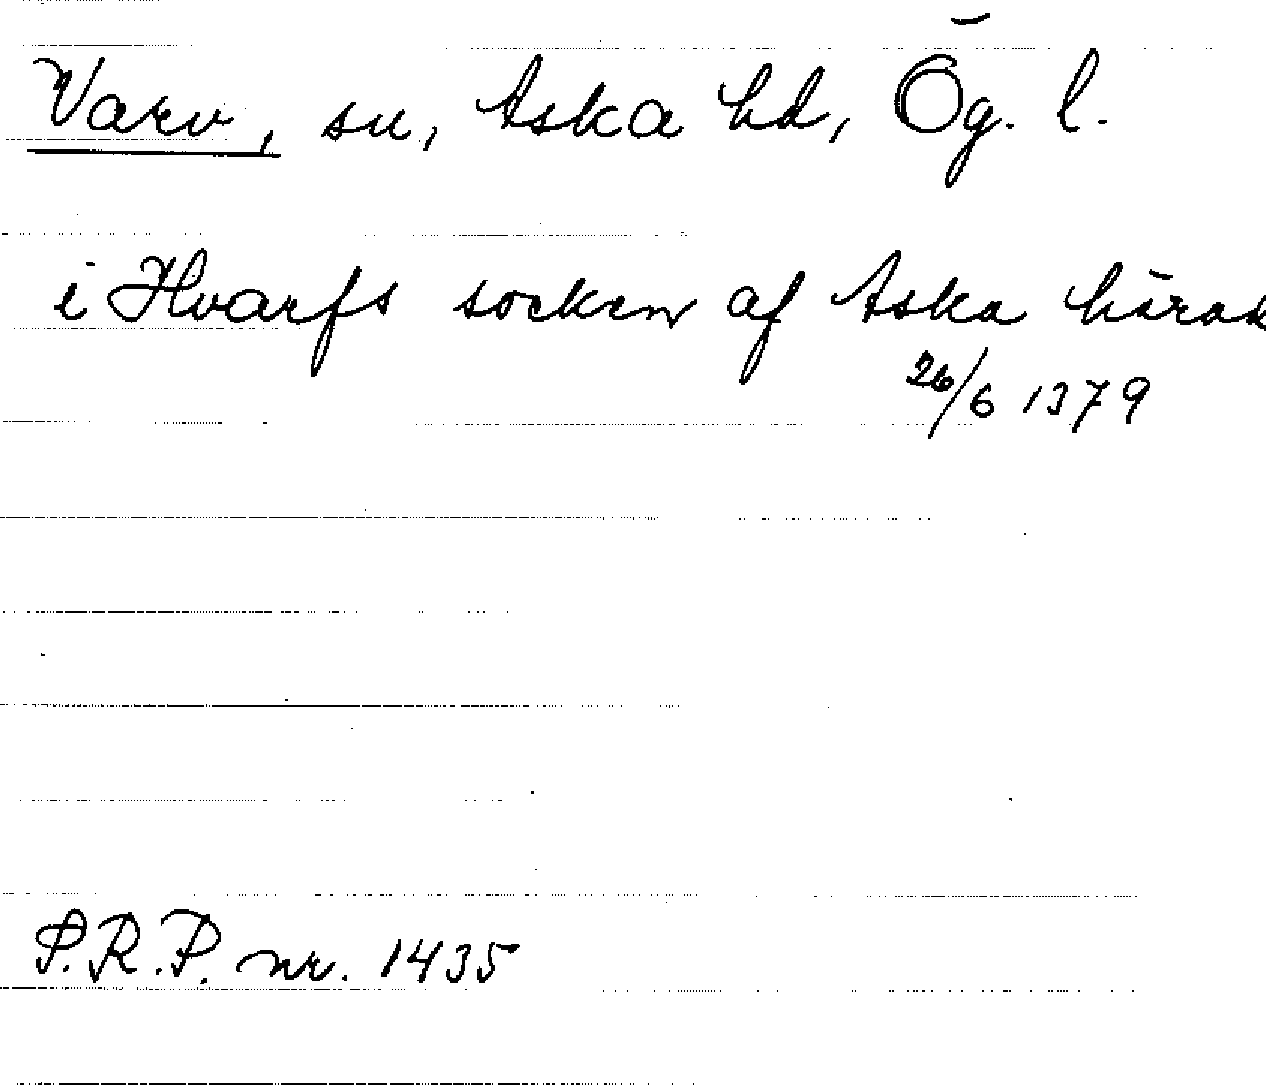 Varv, sn, Aska hd, Ög. l.
i Hvarfs socken af Aska härad
26/6 1379
P.R.P. nr. 1435